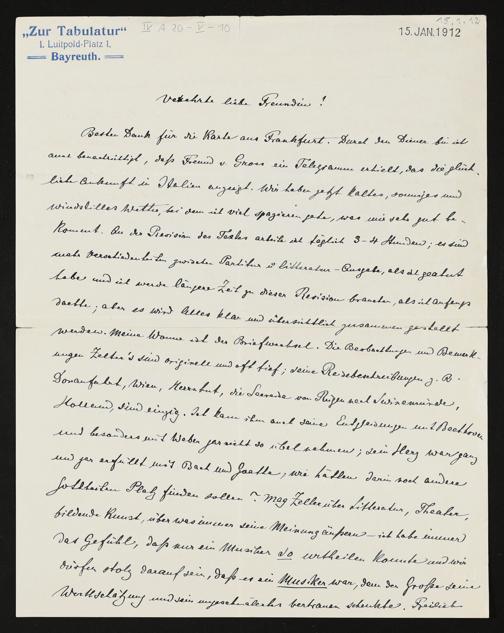 „Zur Tabulatur"
1. Luitpold-Platz 1.
Bayreuth.
IV A 20 - V - 10
15.1.12
15. JAN. 1912
Verehrte liebe Freundin!
Besten Dank für die Karte aus Frankfurt. Durch den Diener bin ich
auch benachrichtigt, daß Freund v. Gross ein Telegramm erhielt, das die glück-
liche Ankunft in Italien anzeigt. Wir haben jetzt kaltes, sonniges und
windstilles Wetter, bei dem ich viel spazieren gehe, was mir sehr gut be-
kommt. An der Revision des Textes arbeite ich täglich 3-4 Stunden; es sind
mehr Verschiedenheiten zwischen Partitur & Litteratur-Ausgabe, als ich geahnt
habe und ich werde längere Zeit zu dieser Revision brauchen, als ich anfangs
dachte; aber es wird Alles klar und übersichtlich zusammen gestellt
werden. Meine Wonne ist der Briefwechsel. Die Beobachtungen und Bemerk-
ungen Zelter's sind originell und oft tief; seine Reisebeschreibungen z. B.
Donaufahrt, Wien, Herrnhut, die Seereise von Rügen nach Swinemünde,
Holland, sind einzig. Ich kann ihm auch seine Entgleisungen mit Beethoven
und besonders mit Weber gar nicht so übel nehmen; sein Herz war ganz
und gar erfüllt mit Bach und Goethe, wie hätten darin noch andere
Gottheiten Platz finden sollen? Mag Zelter über Litteratur, Theater,
bildende Kunst, über was immer seine Meinung äußern – ich habe immer
das Gefühl, daß nur ein Musiker so urtheilen konnte und wir
dürfen stolz darauf sein, daß es ein Musiker war, dem der Große seine
Werthschätzung und sein ungeschmälertes Vertrauen schenkte. Freilich